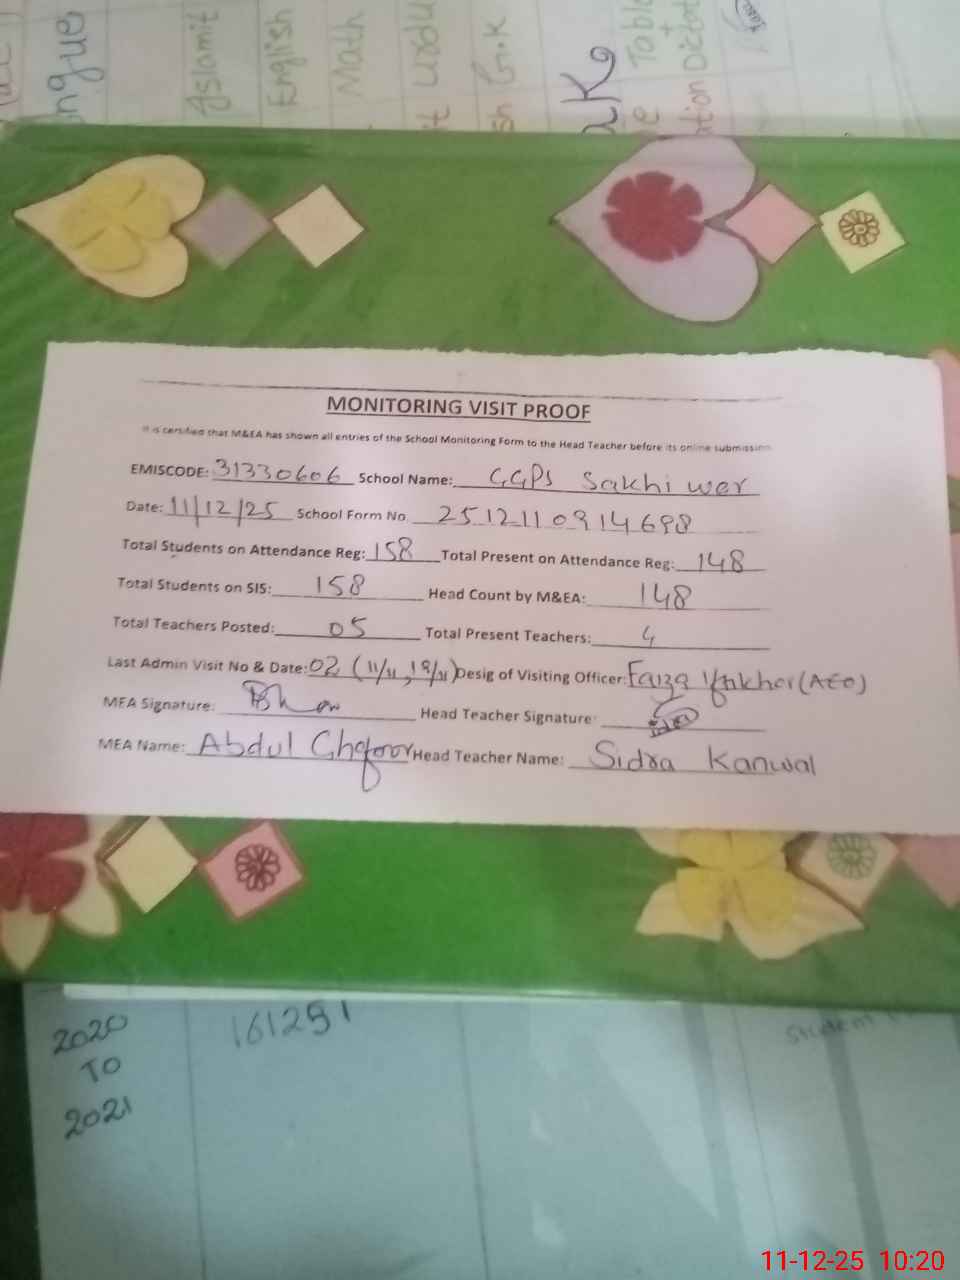 ngue
Islamit
English
Math
urdu
G.K
Table
+
Dictat
MONITORING VISIT PROOF
It is certified that M&EA has shown all entries of the School Monitoring Form to the Head Teacher before its online submission
EMISCODE: 31330606 School Name: GGPS Sakhi wer
Date: 11/12/25 School Form No. 2512110914698
Total Students on Attendance Reg: 158 Total Present on Attendance Reg: 148
Total Students on SIS: 158 Head Count by M&EA: 148
Total Teachers Posted: 05 Total Present Teachers: 4
Last Admin Visit No & Date: 02 (11/11, 19/11) Desig of Visiting Officer: Faiza Iftikhar (AEO)
MEA Signature: Head Teacher Signature:
MEA Name: Abdul Ghafoor Head Teacher Name: Sidra Kanwal
2020 161251
TO
2021
Student
11-12-25 10:20